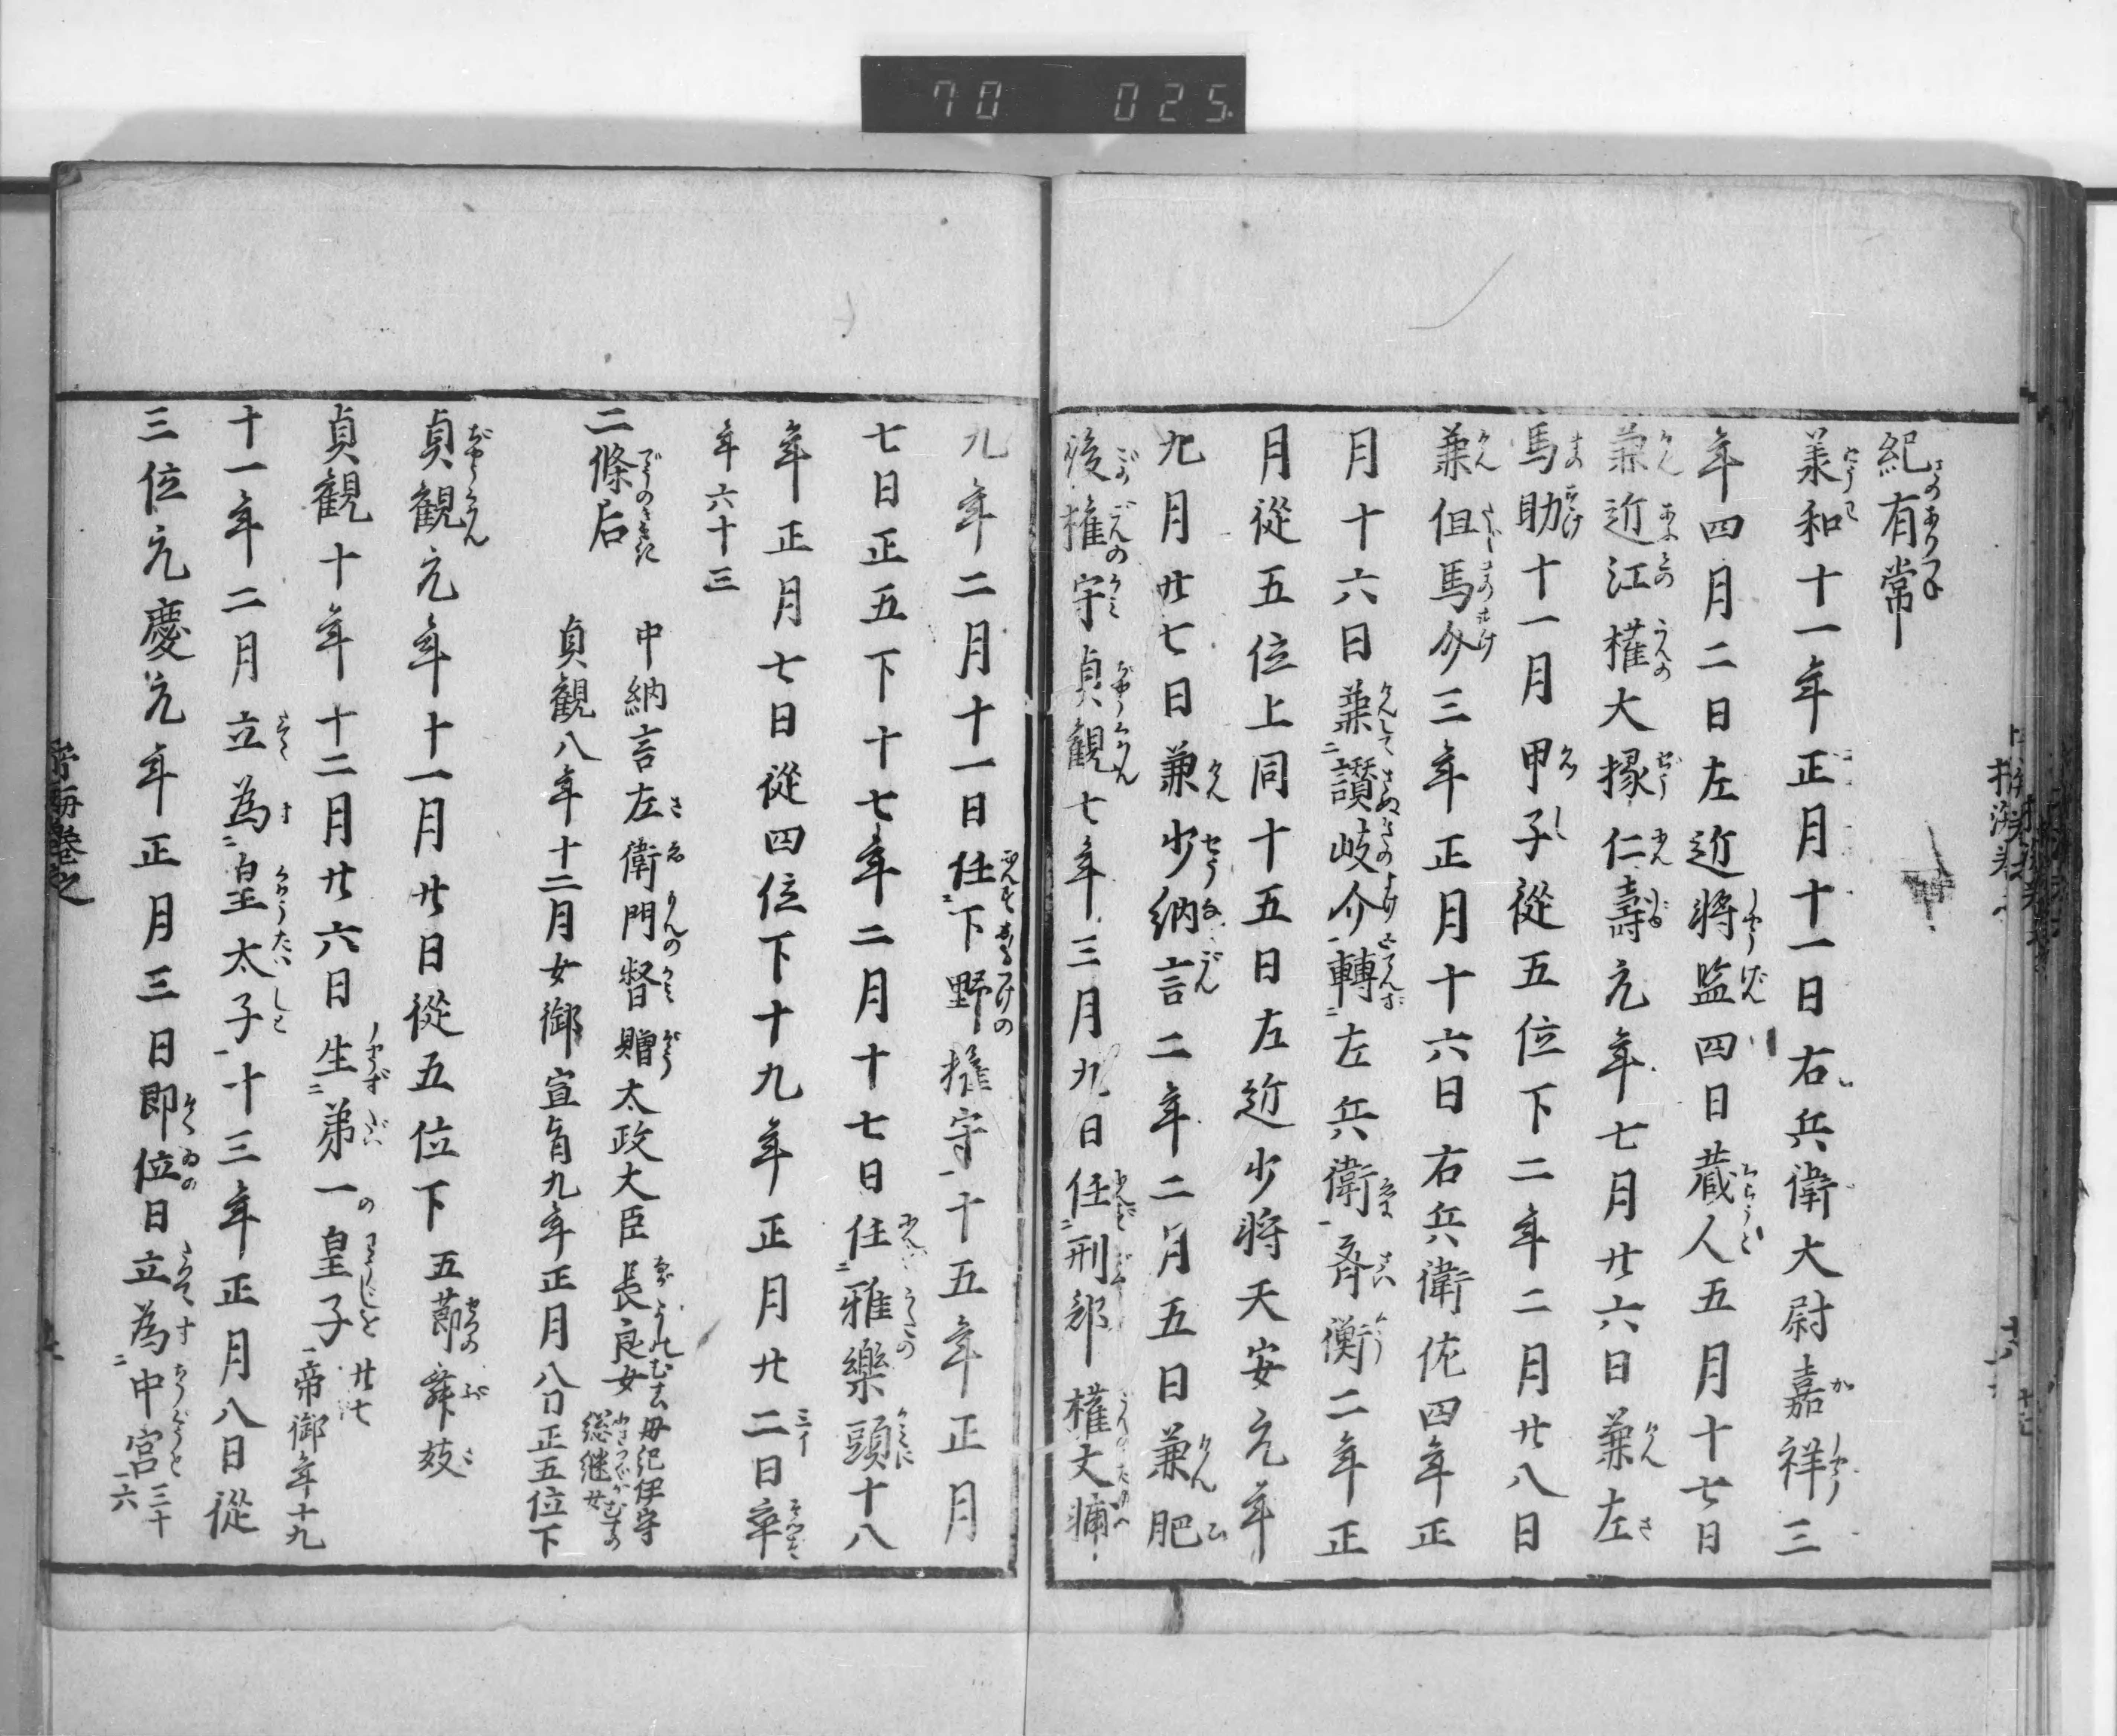 70 025
紀有常
美和十一年正月十一日右兵衛大尉嘉祥三
年四月二日左近將監四日蔵人五月十七日
兼近江權大掾仁壽元年七月廿六日兼左
馬助十一月甲子從五位下二年二月廿八日
兼但馬介三年正月十六日右兵衛佐四年正
月十六日兼讃岐介轉左兵衛斉衡二年正
月從五位上同十五日左近少将天安元年
九月廿七日兼少納言二年二月五日兼肥
後權守貞観七年三月九日任刑部權大輔
九年二月十一日任下野權守十五年正月
七日正五下十七年二月十七日任雅樂頭十八
年正月七日從四位下十九年正月廿二日卒
年六十三
二條后
中納言左衛門督贈太政大臣長良女母紀伊守総継女
貞観八年十二月女御宣旨九年正月八日正五位下
貞観元年十一月廿日從五位下五節舞妓
貞観十年十二月廿六日生弟一皇子廿七帝御年十九
十一年二月立為皇太子十三年正月八日從
三位元慶元年正月三日即位日立為中宮三十六